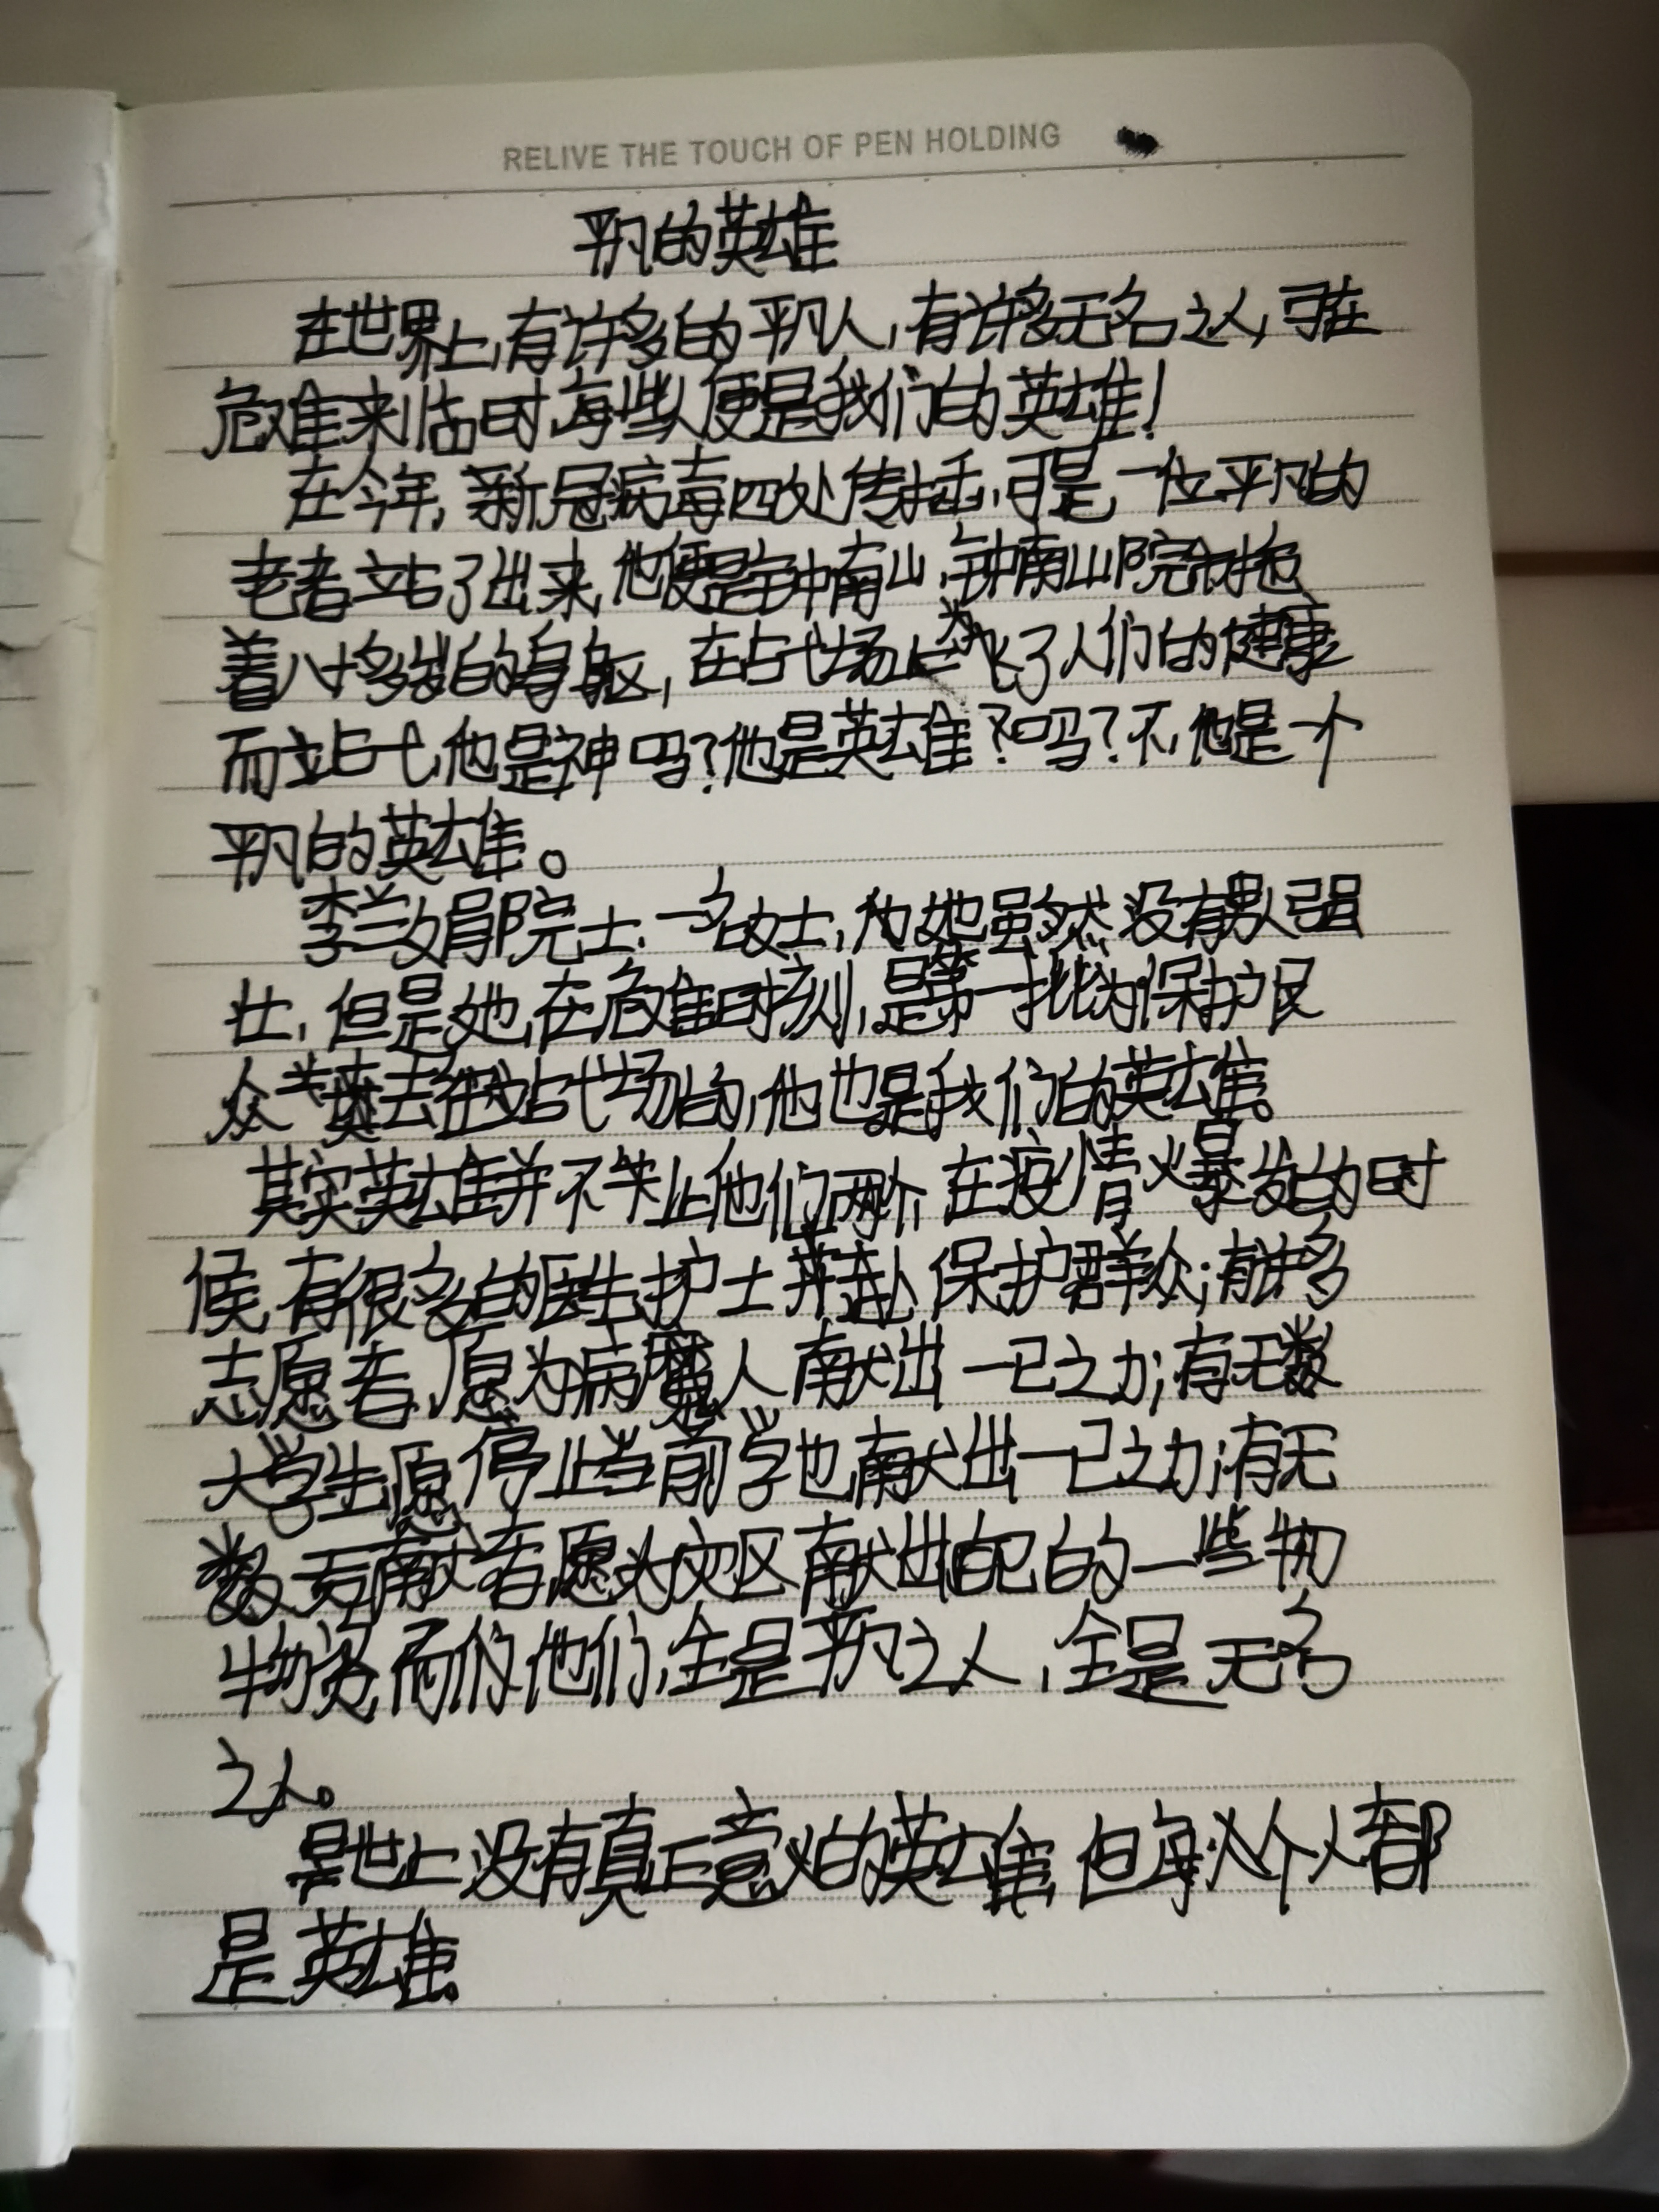 RELIVE THE TOUCH OF PEN HOLDING
平凡的英雄
在世界上,有许多的平凡人,有许多无名之人,可在
危难来临时,每些人便是我们的英雄!
在今年,新冠病毒四处传播,可是,一位平凡的
老者站了出来,他便是钟南山,钟南山院士拖
着八十多岁的身躯,在战场上为了人们的健康
而立战,他是神吗?他是英雄?吗?不,他是一个
平凡的英雄。
李兰娟院士,一名女士,她虽然没有男人强
壮,但是她,在危难时刻,是第一批为保护民
众去往战场的,他也是我们的英雄。
其实英雄并不止他们两个,在疫情爆发的时
候,有很多的医生护士奔赴,保护群众;有许多
志愿者,愿为病人献出一己之力;有无数
大学生愿停止当前学也,献出一己之力;有无
数贡献者,愿为灾区献出自己的一些物
物资,而他们,全是平凡之人,全是无名
之人。
世上没有真正意义的英雄,但每个人都
是英雄。